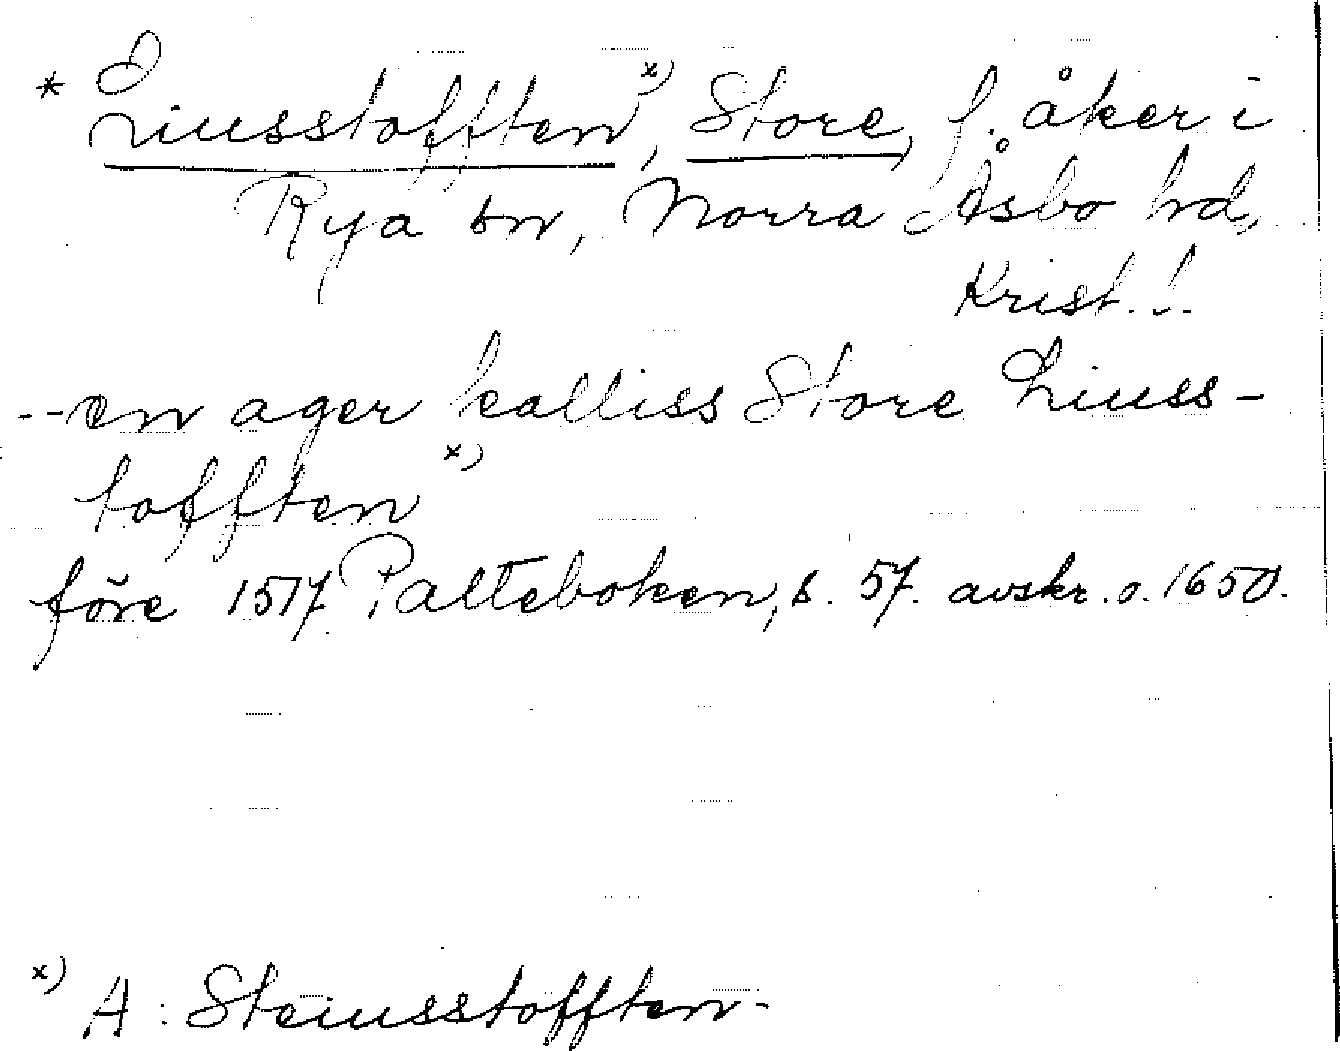 * Liusstofften x), Store, f. åker i
Rya sn, Norra Åsbo hd,
Krist. l.
--en ager kalliss Store Liuss-
tofften x)
före 1517 Palteboken, s. 57. avskr. o. 1650.
x) A: Steiusstofften-